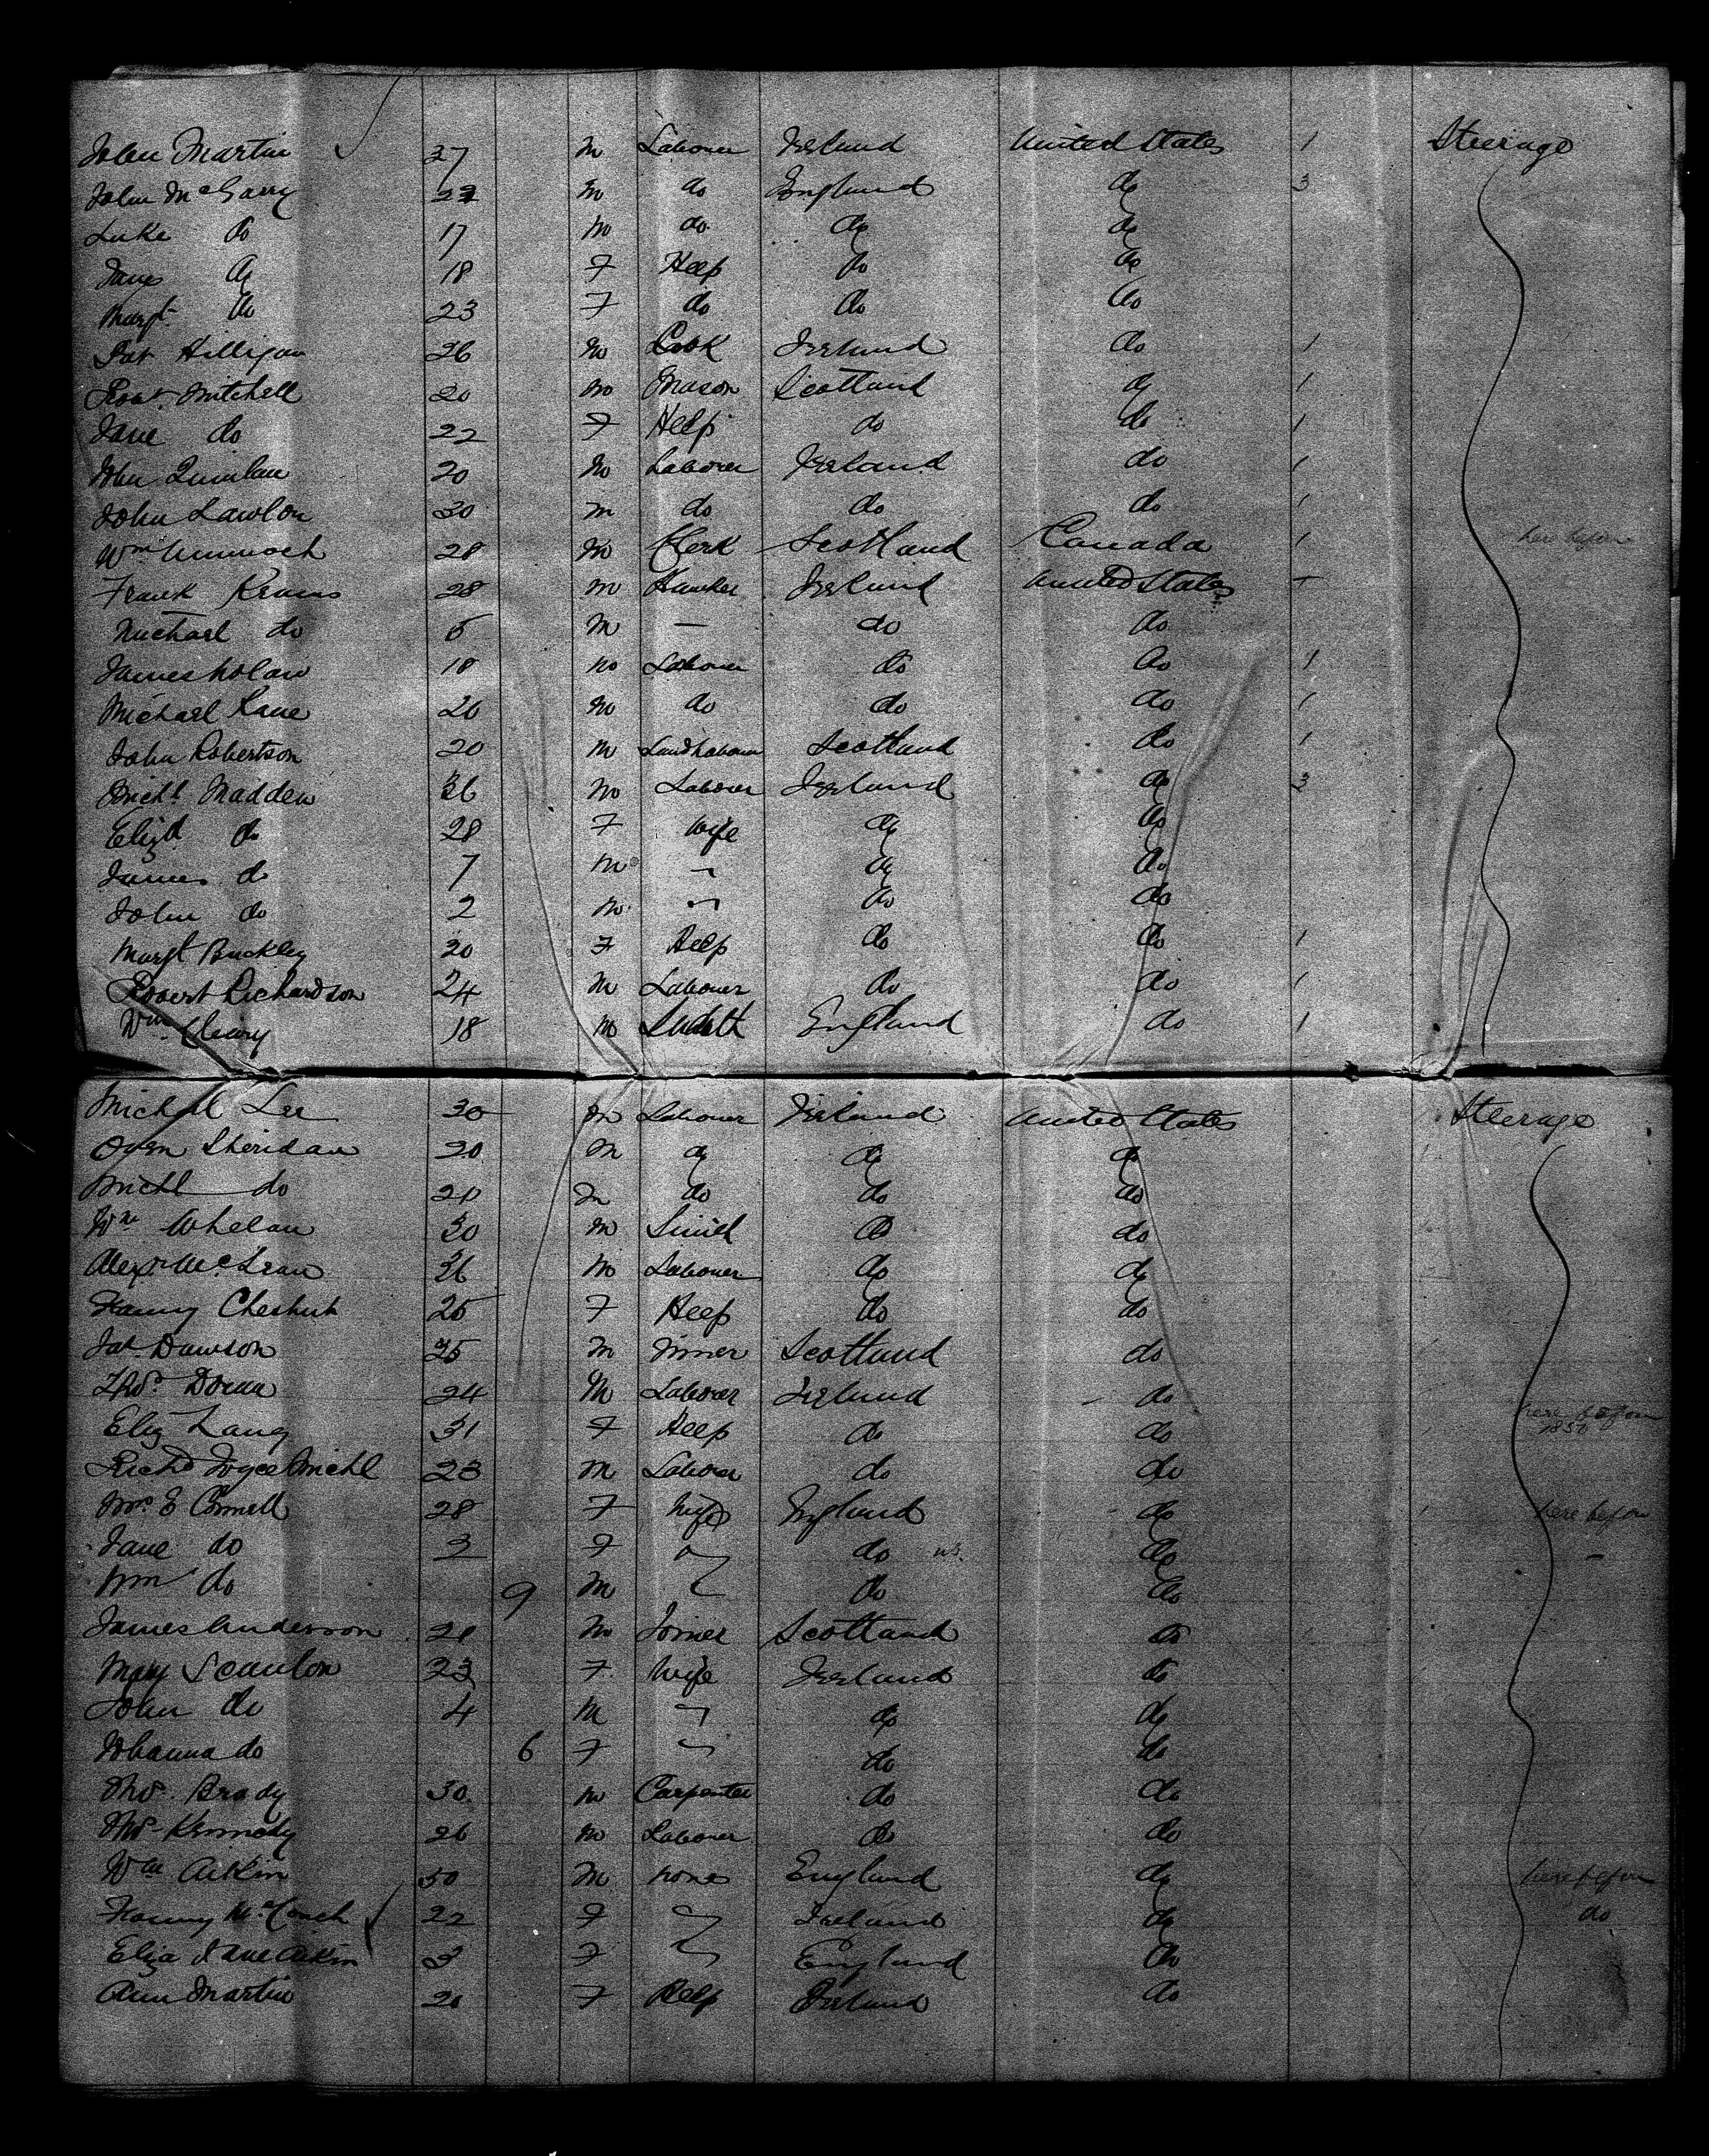 John Martin 27 m Labourer Ireland United States 1 Steerage
John McGarry 22 m do England do 3
Luke do 17 m do do do
James do 18 F Help do do
Margt do 23 F do do do
Pat Hilligan 26 m Cook Ireland do 1
Robt Mitchell 20 m Mason Scotland do 1
Jane do 22 F Help do do 1
John Quinlan 20 m Laborer Ireland do 1
John Lawlor 30 m do do do 1
Wm 28 m Clerk Scotland Canada 1 here before
Frank 28 m Ireland United States
Michael do 5 m — do do
James Nolan 18 m Labourer do do 1
Michael Kane 20 m do do do 1
John Robertson 20 m Scotland do 1
Michl Madden 36 m Laborer Ireland do 3
Elizd do 28 F Wife do do
James do 7 m do do
John do 2 m do do
Margt Buckley 20 F Help do do 1
Robert Richardson 24 m Labourer do do 1
Wm Cleary 18 m England do 1
Michael Lee 30 m Labourer Ireland United States Steerage
Owen Sheridan 20 m do do do
Michl do 21 m do do do
Wm Whelan 30 m Smith do do
Alexr McLean 36 m Labourer do do
Fanny Chesnut 25 F Help do do
Jas Dawson 35 m Miner Scotland do
Thos Doran 24 m Laborer Ireland do
Eliz Lang 31 F Help do do here before 1850
Richd Joyce Michl 23 m Laborer do do
Mrs E Connell 28 F Wife England do here before
Jane do 3 F do do
Wm do 9 m do do
James Anderson 21 m Joiner Scotland do
Mary Scanlon 23 F Wife Ireland do
John do 4 m do do
Johanna do 6 F do do
Thos Brady 30 m Carpenter do do
Thos Kennedy 26 m Labourer do do
Wm Aitkin 50 m none England do here before
Fanny 22 F Ireland do do
Eliza Jane Aitkin 3 F England do
Ann Martin 20 F Help Ireland do